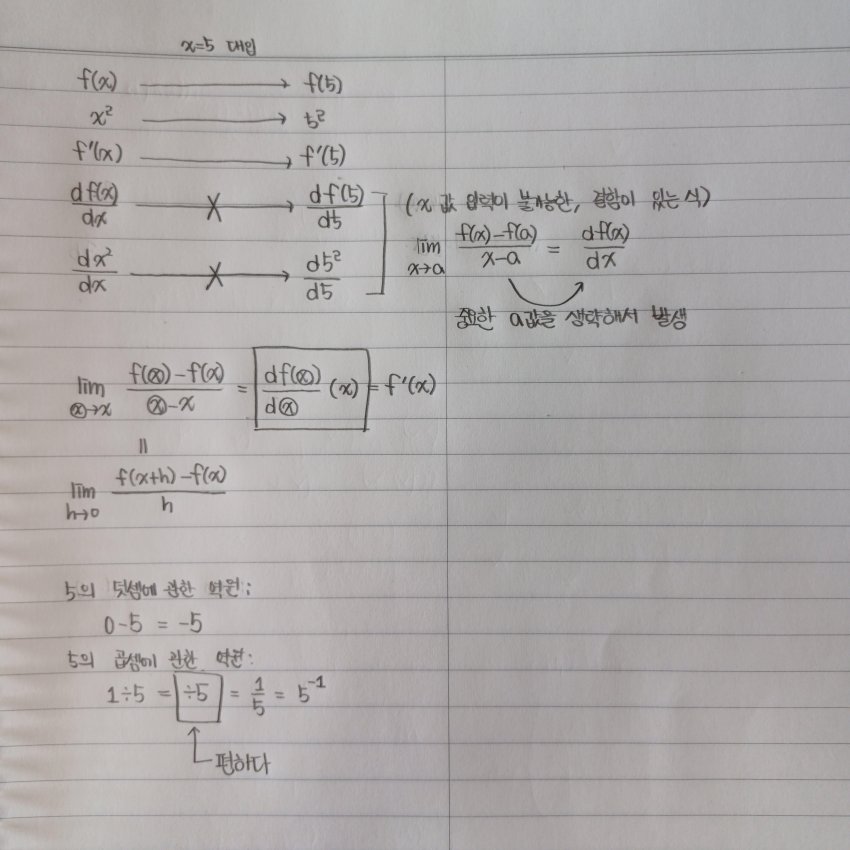 x=5 대입
f(x) → f(5)
x² → 5²
f'(x) → f'(5)
df(x)/dx —X→ df(5)/d5
(x 값 입력이 불가능한, 결함이 있는 식)
dx²/dx —X→ d5²/d5
lim x→a f(x)-f(a)/x-a = df(x)/dx
중요한 a값을 생략해서 발생
lim ⓧ→x f(ⓧ)-f(x)/ⓧ-x = df(ⓧ)/dⓧ (x) = f'(x)
=
lim h→0 f(x+h)-f(x)/h
5의 덧셈에 관한 역원:
0-5 = -5
5의 곱셈에 관한 역원:
1÷5 = ÷5 = 1/5 = 5⁻¹
편하다